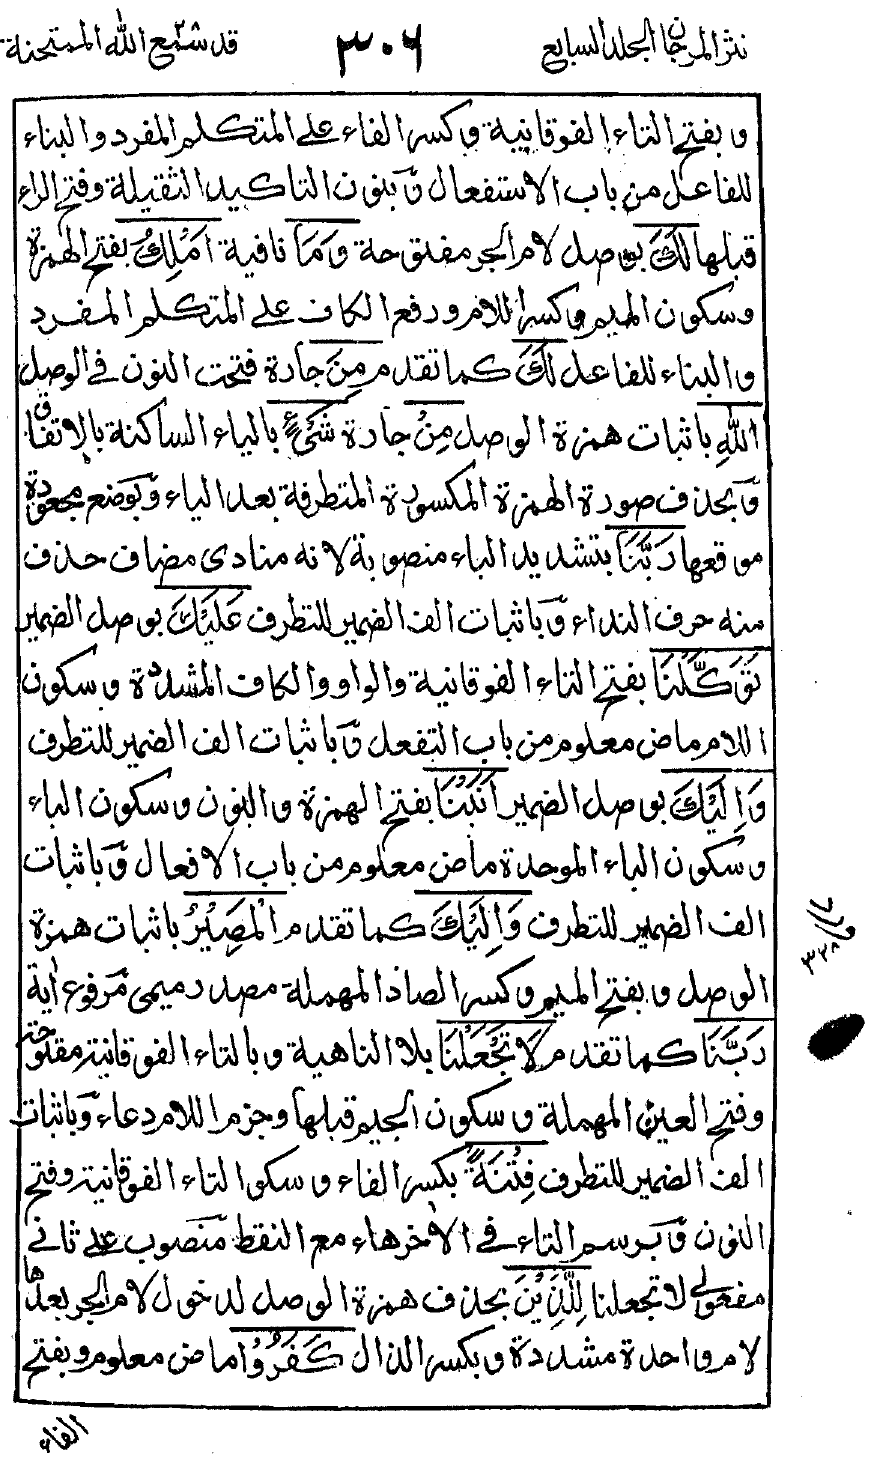 نثر المرجان الجلد السابع ٣٠٦ قد سمع الله ٢٨ الممتحنة
وبفتح التاء الفوقانية وكسر الفاء على المتكلم المفرد والبناء
للفاعل من باب الاستفعال وَبنون التاكيد الثقيلة وفتح الراء
قبلها لَكَ بوصل لام الجر مفتوحة وَمَا نافية اَمْلِكُ بفتح الهمزة
وسكون الميم وكسر اللام ورفع الكاف على المتكلم المفرد
والبناء للفاعل لَكَ كما تقدم مِنَ جارة فتحت النون في الوصل
اللهِ باثبات همزة الوصل مِنْ جارة شَىْءٍ بالياء الساكنة بالاتفاق
وَبحذف صورة الهمزة المكسورة المتطرفة بعد الياء وَبوضع مجعودة
موقعها رَبَّنَا بتشديد الباء منصوبة لانه منادى مضاف حذف
منه حرف النداء وَباثبات الف الضمير للتطرف عَلَيْكَ بوصل الضمير
تَوَكَّلْنَا بفتح التاء الفوقانية والواو والكاف المشددة وسكون
اللام ماض معلوم من باب التفعل وَباثبات الف الضمير للتطرف
وَاِلَيْكَ بوصل الضمير اَنَبْنَا بفتح الهمزة والنون وسكون الباء
وسكون الباء الموحدة ماض معلوم من باب الافعال وَباثبات
الف الضمير للتطرف وَاِلَيْكَ كما تقدم الْمَصِيْرُ باثبات همزة
الوصل وبفتح الميم وكسر الصاد المهملة مصدر ميمى مرفوع اٰية
رَبَّنَا كما تقدم لَا تَجْعَلْنَا بلا الناهية وبالتاء الفوقانية مفتوحة
وفتح العين المهملة وسكون الجيم قبلها وجزم اللام دعاء وَباثبات
الف الضمير للتطرف فِتْنَةً بكسر الفاء وسكو التاء الفوقانية وفتح
النون وَبرسم التاء في الاٰخرهاء مع النقط منصوب على ثاني
مفعولي لا تجعلنا لِلَّذِيْنَ بحذف همزة الوصل لدخول لام الجر بعدها
لام واحدة مشددة وبكسر الذال كَفَرُوْا ماض معلوم وبفتح
الفاء
٣٢٨